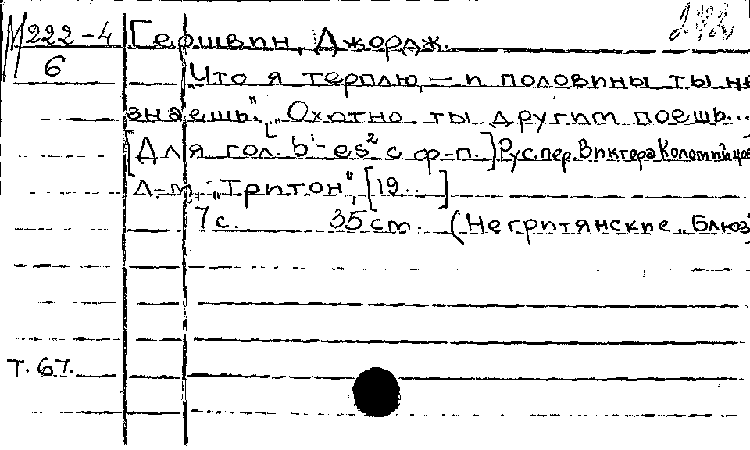 М 222-4 Гершвин, Джордж.
6 "Что я терплю, — и половины ты не
знаешь". "Охотно ты другим поешь...
[Для гол. b¹-es² с ф-п.] Рус. пер. Виктора Коломийцова
Л-д, "Тритон", [19..]
7 с. 35 см. (Негритянские блюз
Т. 67.